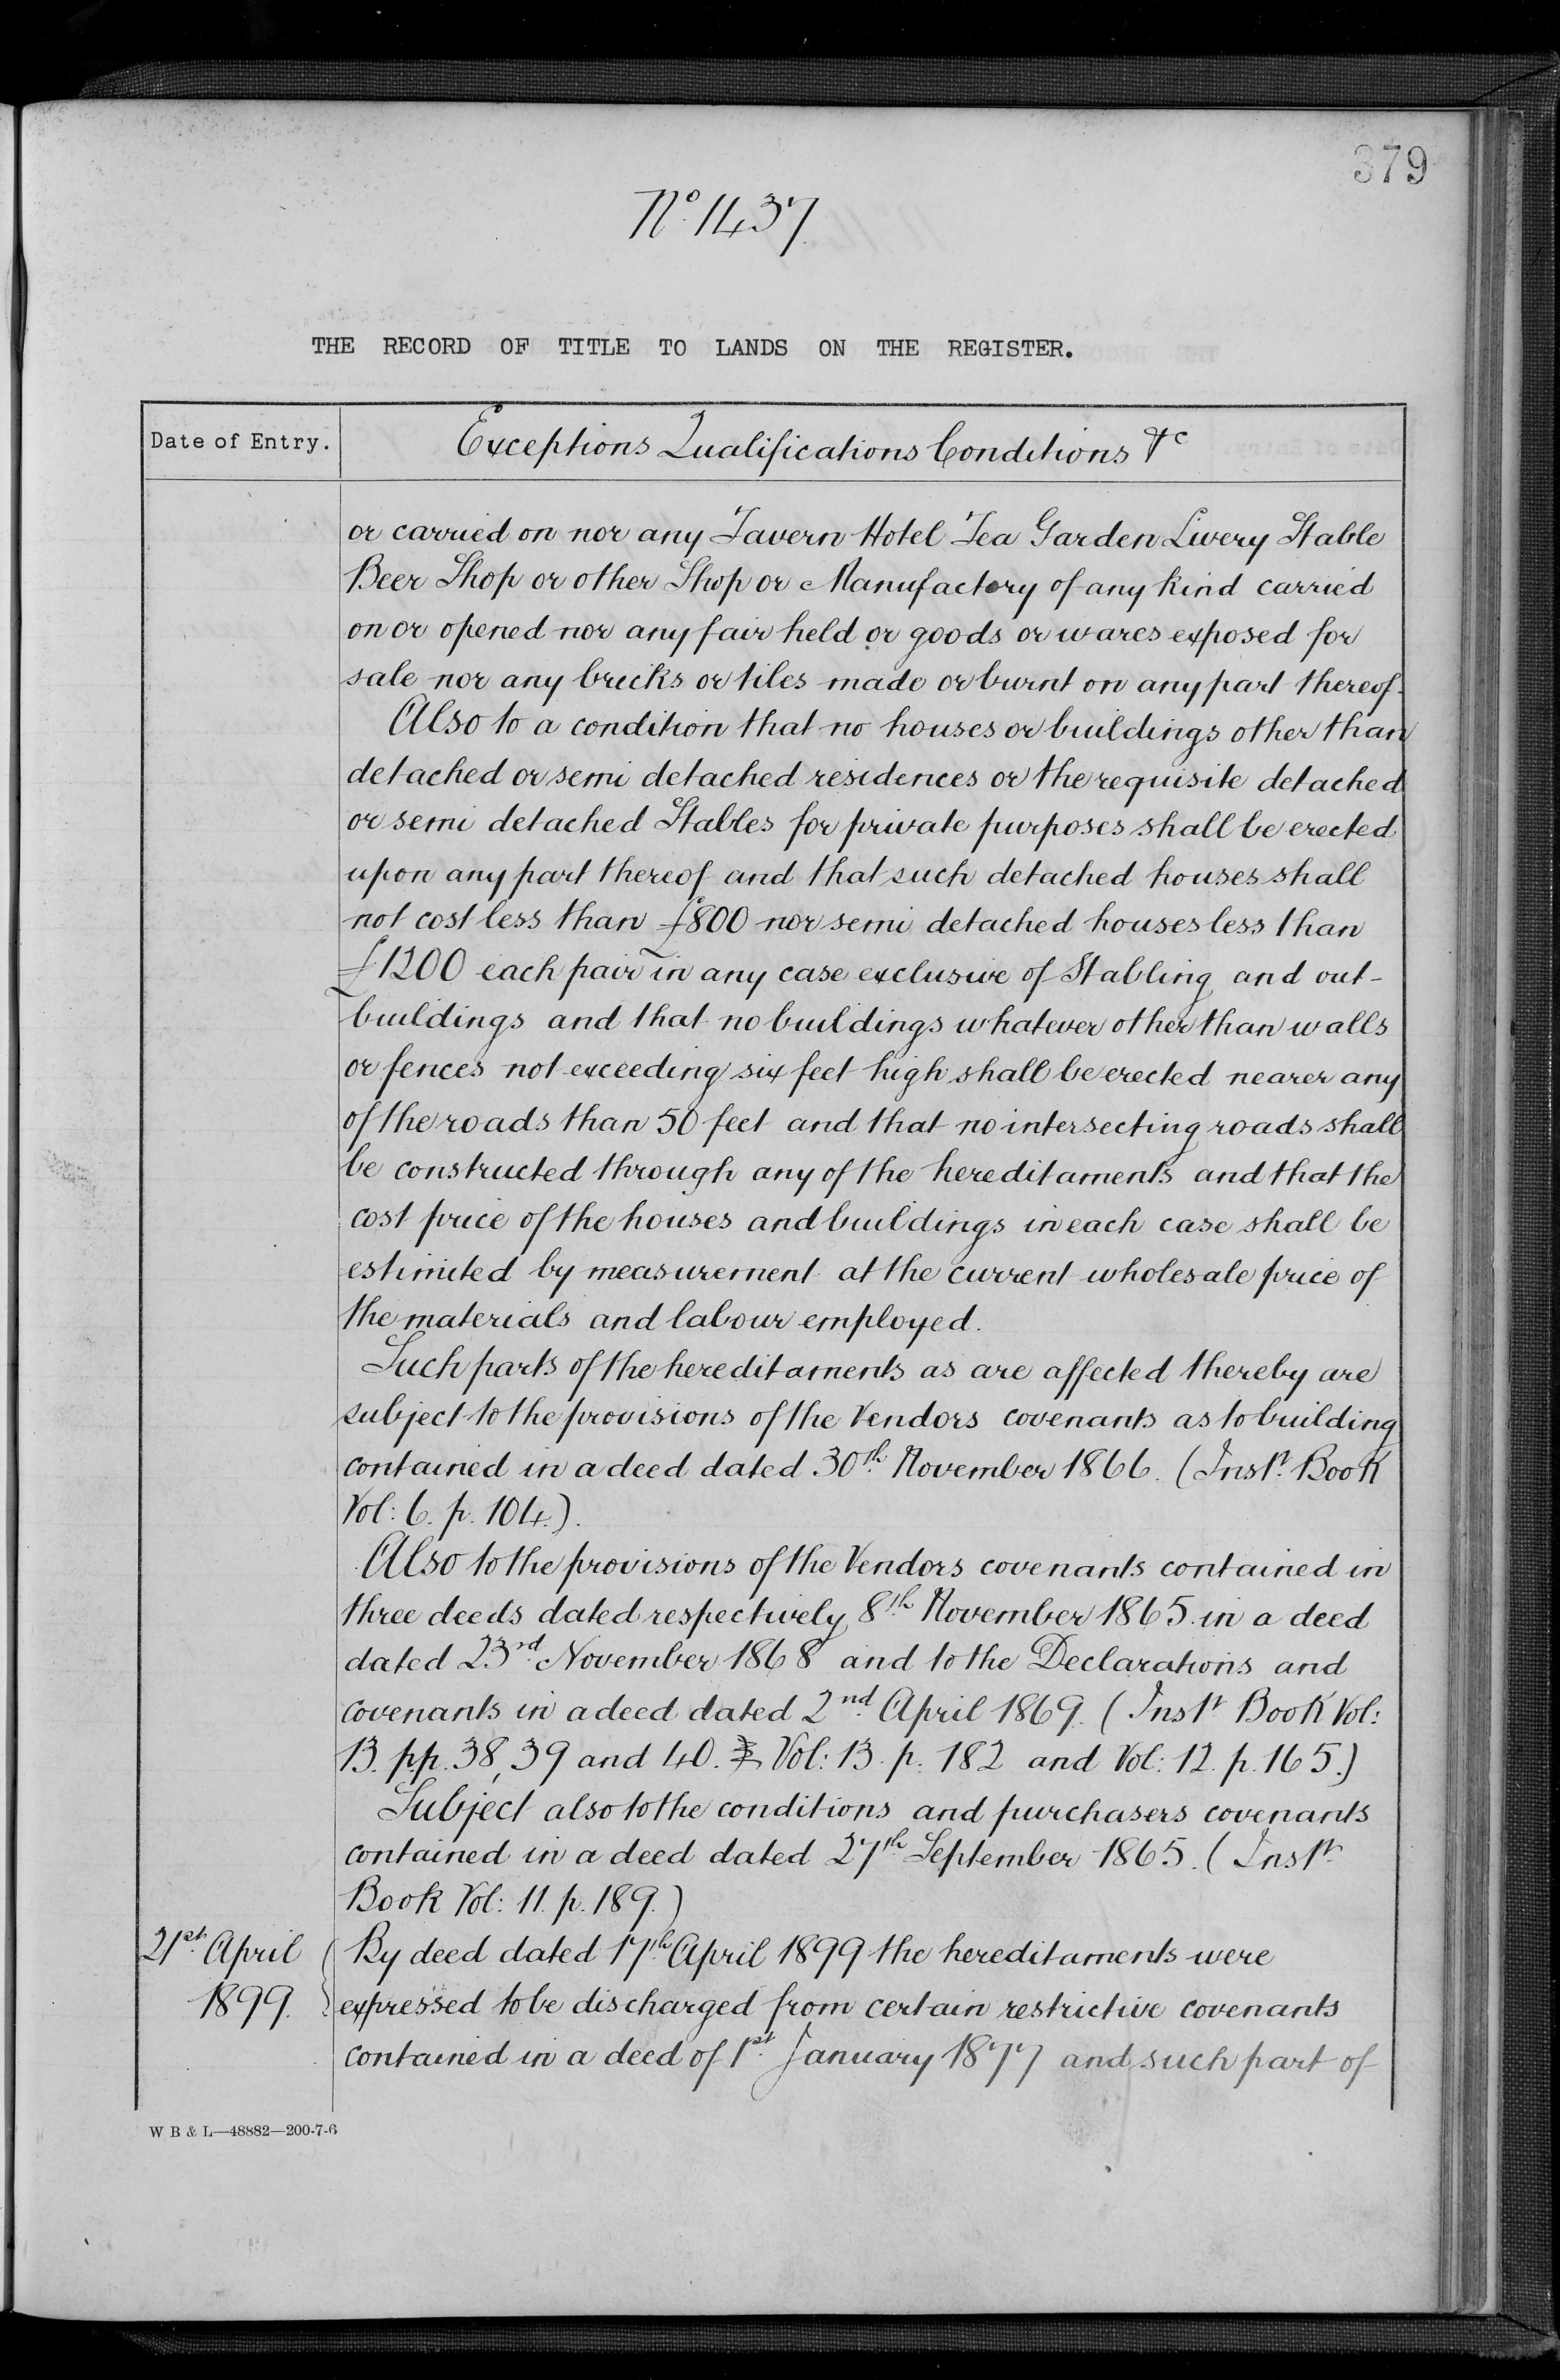 379
No. 1437.
THE RECORD OF TITLE TO LANDS ON THE REGISTER.
Date of Entry.
Exceptions Qualifications Conditions &c
or carried on nor any Tavern Hotel Tea Garden Livery Stable
Beer Shop or other Shop or Manufactory of any kind carried
on or opened nor any fair held or goods or wares exposed for
sale nor any bricks or tiles made or burnt on any part thereof.
Also to a condition that no houses or buildings other than
detached or semi detached residences or the requisite detached
or semi detached Stables for private purposes shall be erected
upon any part thereof and that such detached houses shall
not cost less than £800 nor semi detached houses less than
£1200 each pair in any case exclusive of Stabling and out-
buildings and that no buildings whatever other than walls
or fences not exceeding six feet high shall be erected nearer any
of the roads than 50 feet and that no intersecting roads shall
be constructed through any of the hereditaments and that the
cost price of the houses and buildings in each case shall be
estimited by measurement at the current wholesale price of
the materials and labour employed.
Such parts of the hereditaments as are affected thereby are
subject to the provisions of the Vendors covenants as to building
contained in a deed dated 30th November 1866. (Inst. Book
Vol: 6. p. 104.).
Also to the provisions of the Vendors covenants contained in
three deeds dated respectively 8th November 1865. in a deed
dated 23rd November 1868 and to the Declarations and
covenants in a deed dated 2nd April 1869. (Inst Book Vol:
13. pp. 38, 39 and 40. Vol: 13. p. 182 and Vol: 12. p. 165.)
Subject also to the conditions and purchasers covenants
contained in a deed dated 27th September 1865. (Inst
Book Vol: 11. p. 189.)
21st April
1899.
By deed dated 17th April 1899 the hereditaments were
expressed to be discharged from certain restrictive covenants
contained in a deed of 1st January 1877 and such part of
W B & L—48882—200-7-6